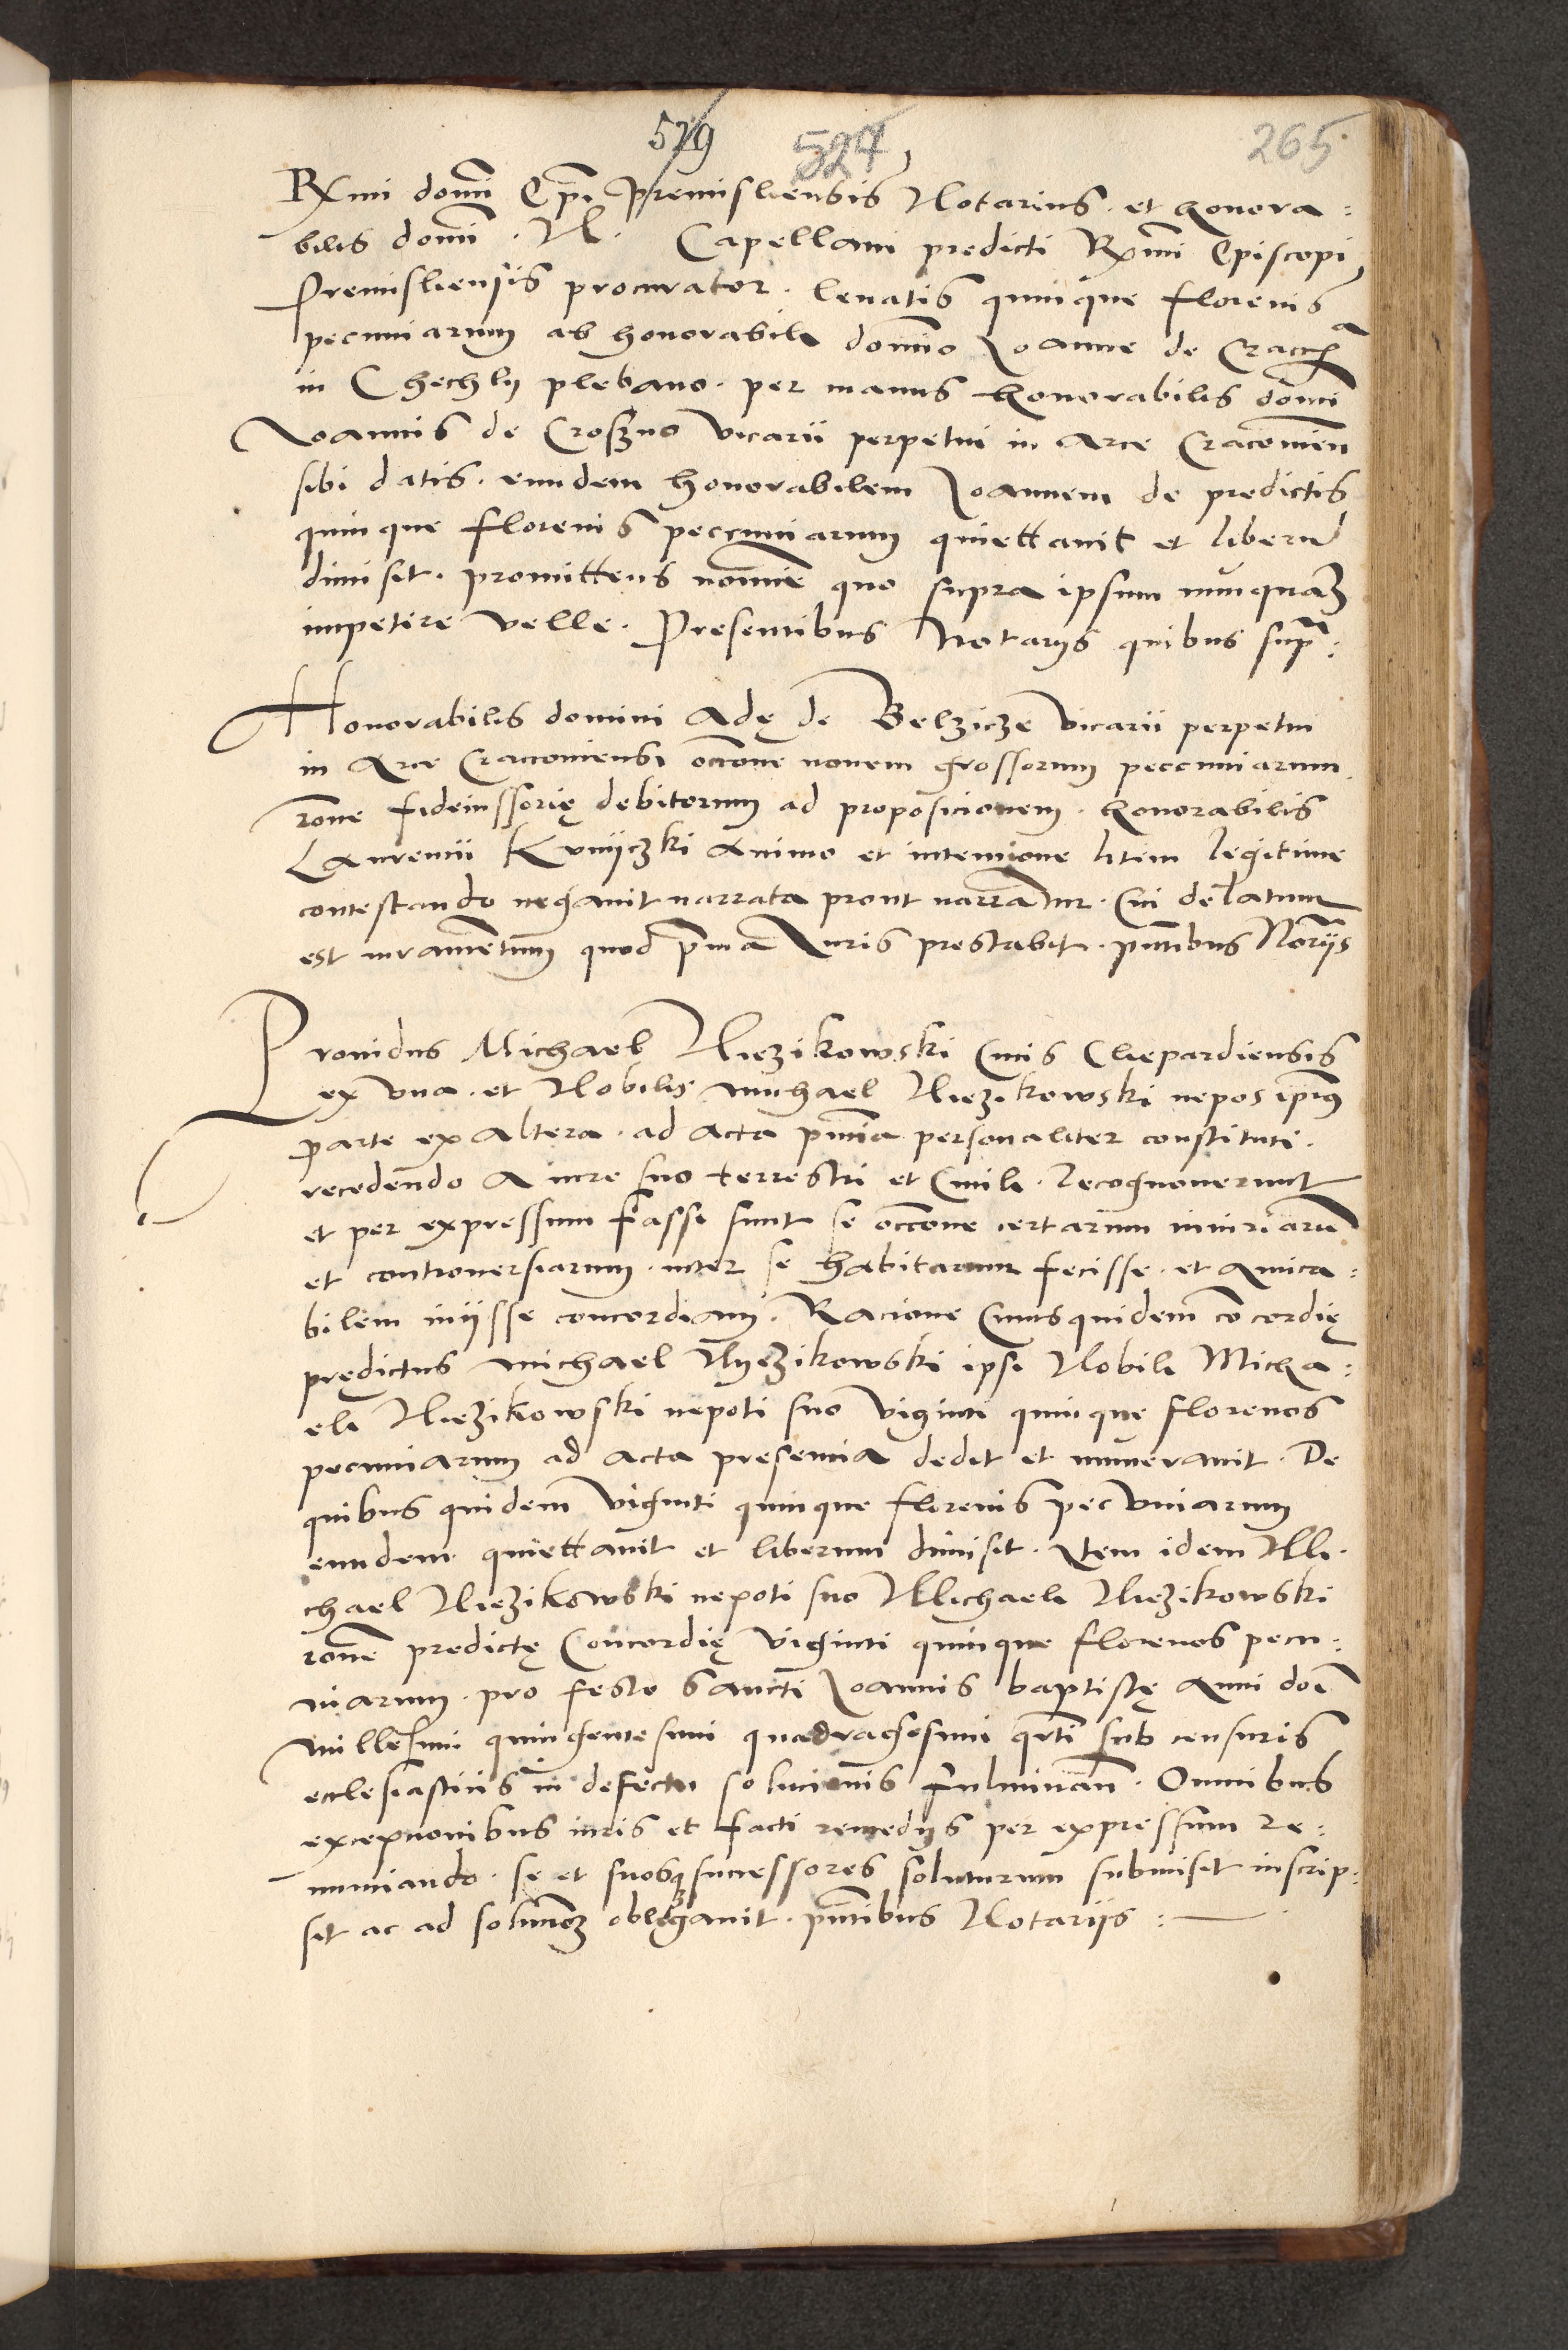 529 524 265
RXmi domi Epi Premisliensis Notarius. et honora:
bilis domi. N. Capellani predicti RXmi Episcopi
Premisliensis procurator. leuatis quinque florenis
pecuniarum ab honorabili domino Joanne de Cracca
in Chechly plebano. per manus honorabilis domi
Joannis de Croszno vicarii perpetui in Arce Cracouien
sibi datis. eundem honorabilem Joannem de predictis
quinque florenis peccuniarum quiettauit et liberu
dimisit. promittens nomine quo supra ipsum nunquam
impetire velle. Presentibus Notarijs quibus supra:
Honorabilis domini Adę de Belzicze vicarii perpetui
in Arce Cracouiensi occone nouem grossorum peccuniarum
rone fideiussorię debitorum ad proposicionem. honorabilis
Laurencii Kunijczki animo et intencione litem legitime
contestando negauit narrata prout narrantur. Cui delatum
est iuramentum quod prima Juris prestabit. pntibus Norijs
Prouidus Michael Niezikowski Ciuis Cleopardiensis
ex vna. et Nobilis michael Niezikowski nepos ipius
parte ex altera. ad acta pncia personaliter constituti.
recedendo a iure suo terrestri et Ciuili. recognouerunt
et per expressum fassi sunt se occone certarum iniuriaru
et controuersiarum. inter se habitarum fecisse. et amica:
bilem inijsse concordiam. Racione Cuiusquidem cocordię
prędictus michael Nyezikowski ipsi Nobili Micha:
eli Niezikowski nepoti suo viginti quinque florenos
pecuniarum ad acta presencia dedit et numerauit. De
quibus quidem viginti quinque florenis pecuniarum
eundem quiettauit et liberum dimisit. Item idem Mi.
chael Niezikowski nepoti suo Michaeli Niezikowski
rone predictę Concordię viginti quinque florenos pecu:
niarum. pro festo Sancti Joannis baptistę Anni doi
millesimi quingentesimi quadragesimi qrti sub censuris
ecclesiasticis in defectu solucionis fulminan. Omnibus
excepcionibus iuris et facti remedijs per expressum re:
nunciando. se et suosq successores soluturum submisit inscrip:
sit ac ad solucionem obligauit. pntibus Notarijs: